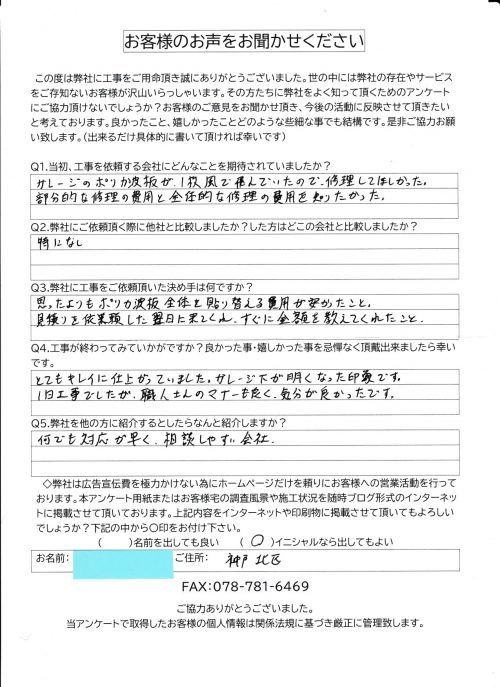 お客様のお声をお聞かせください
この度は弊社に工事をご用命頂き誠にありがとうございました。世の中には弊社の存在やサービス
をご存知ないお客様が沢山いらっしゃいます。その方たちに弊社をよく知って頂くためのアンケート
にご協力頂けないでしょうか?お客様のご意見をお聞かせ頂き、今後の活動に反映させて頂きたい
と考えております。良かったこと、嬉しかったことどのような些細な事でも結構です。是非ご協力お願
い致します。(出来るだけ具体的に書いて頂ければ幸いです)
Q1.当初、工事を依頼する会社にどんなことを期待されていましたか?
ガレージのポリカ波板が、1枚風で飛んでいたので、修理してほしかった。
部分的な修理の費用と全体的な修理の費用を知りたかった。
Q2.弊社にご依頼頂く際に他社と比較しましたか?した方はどこの会社と比較しましたか?
特になし
Q3.弊社に工事をご依頼頂いた決め手は何ですか?
思ったよりもポリカ波板全体を貼り替える費用が安かったこと。
見積りを依頼した翌日に来てくれ、すぐに金額を教えてくれたこと。
Q4.工事が終わってみていかがですか?良かった事・嬉しかった事を忌憚なく頂戴出来ましたら幸い
です。
とてもキレイに仕上がっていました。ガレージ下が明くなった印象です。
1日工事でしたが、職人さんのマナーも良く、気分が良かったです。
Q5.弊社を他の方に紹介するとしたらなんと紹介しますか?
何でも対応が早く、相談しやすい会社。
◇弊社は広告宣伝費を極力かけない為にホームページだけを頼りにお客様への営業活動を行って
おります。本アンケート用紙またはお客様宅の調査風景や施工状況を随時ブログ形式のインターネッ
トに掲載させて頂いております。上記内容をインターネットや印刷物に掲載させて頂いてもよろしい
でしょうか?下記の中から〇印をお付け下さい。
( )名前を出しても良い (〇)イニシャルなら出してもよい
お名前: ご住所: 神戸 北区
FAX:078-781-6469
ご協力ありがとうございました。
当アンケートで取得したお客様の個人情報は関係法規に基づき厳正に管理致します。